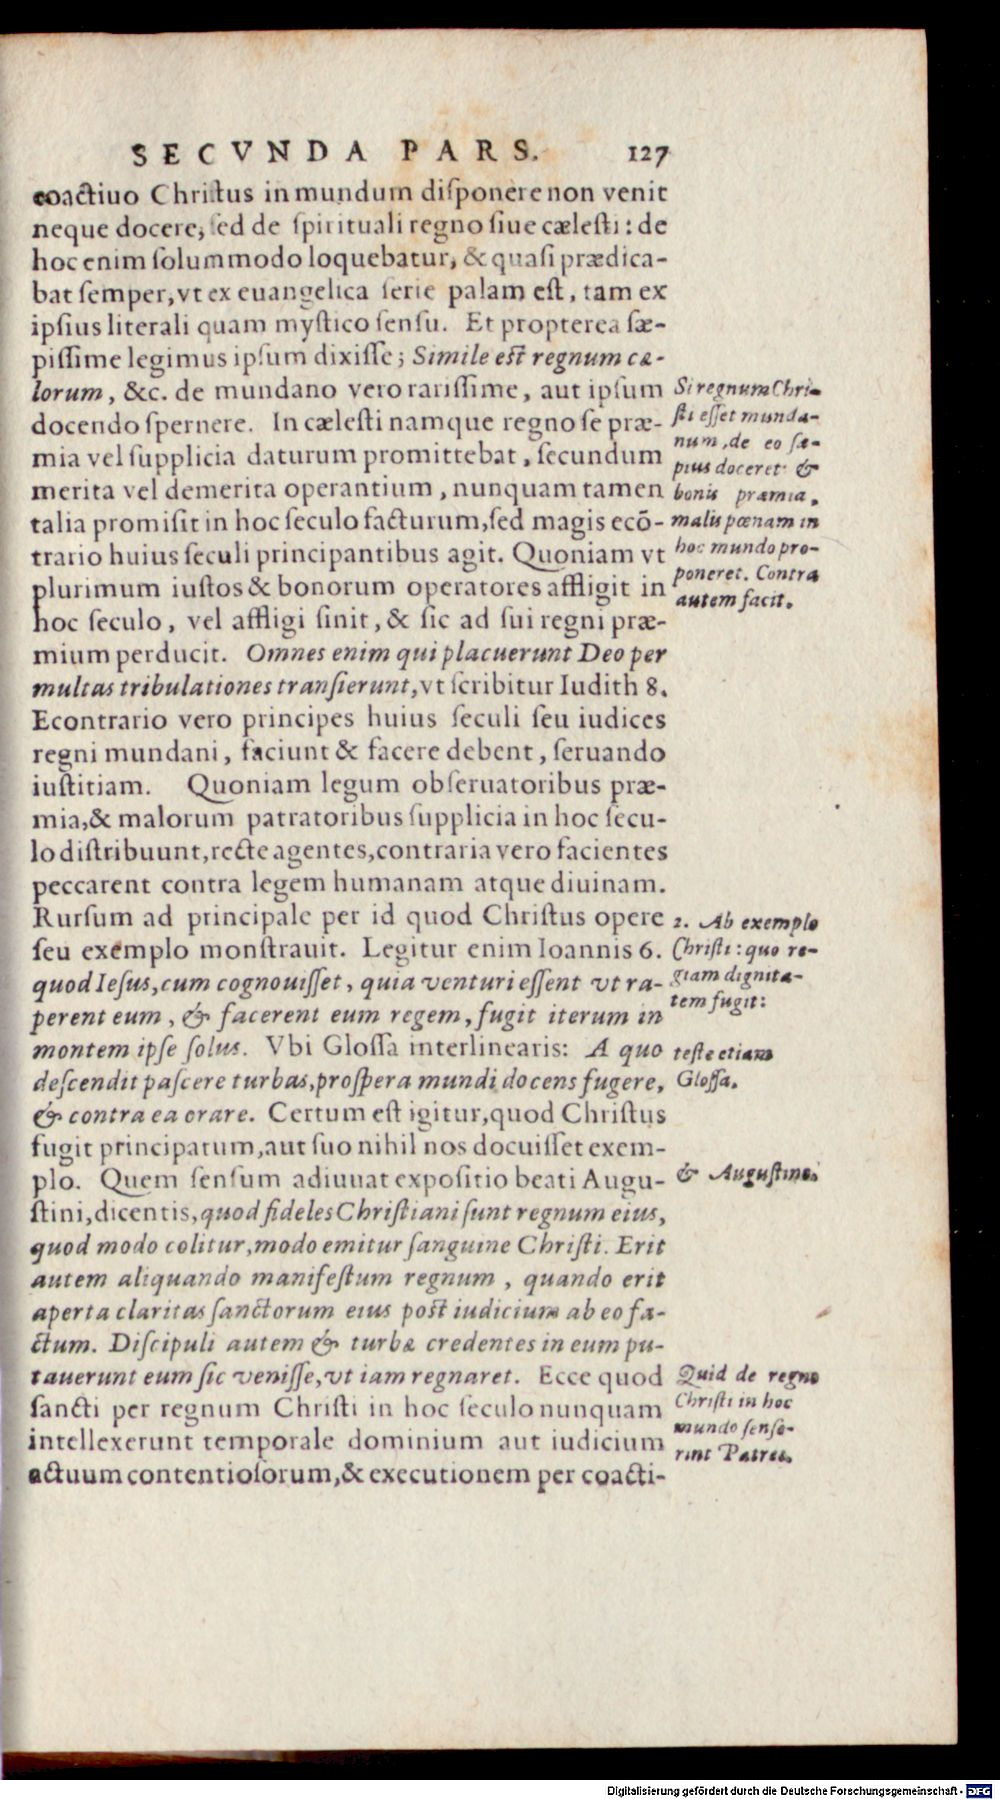 SECVNDA PARS. 127
coactiuo Christus in mundum disponere non venit
neque docere, sed de spirituali regno siue cælesti: de
hoc enim solummodo loquebatur, & quasi prædica-
bat semper, vt ex euangelica serie palam est, tam ex
ipsius literali quam mystico sensu. Et propterea sæ-
pissime legimus ipsum dixisse; Simile est regnum cæ-
lorum, &c. de mundano vero rarissime, aut ipsum
docendo spernere. In cælesti namque regno se præ-
mia vel supplicia daturum promittebat, secundum
merita vel demerita operantium, nunquam tamen
talia promisit in hoc seculo facturum, sed magis ecō-
trario huius seculi principantibus agit. Quoniam vt
plurimum iustos & bonorum operatores affligit in
hoc seculo, vel affligi sinit, & sic ad sui regni præ-
mium perducit. Omnes enim qui placuerunt Deo per
multas tribulationes transierunt, vt scribitur Iudith 8.
Econtrario vero principes huius seculi seu iudices
regni mundani, faciunt & facere debent, seruando
iustitiam. Quoniam legum obseruatoribus præ-
mia, & malorum patratoribus supplicia in hoc secu-
lo distribuunt, recte agentes, contraria vero facientes
peccarent contra legem humanam atque diuinam.
Rursum ad principale per id quod Christus opere
seu exemplo monstrauit. Legitur enim Ioannis 6.
quod Iesus, cum cognouisset, quia venturi essent vt ra-
perent eum, & facerent eum regem, fugit iterum in
montem ipse solus. Vbi Glossa interlinearis: A quo
descendit pascere turbas, prospera mundi docens fugere,
& contra ea orare. Certum est igitur, quod Christus
fugit principatum, aut suo nihil nos docuisset exem-
plo. Quem sensum adiuuat expositio beati Augu-
stini, dicentis, quod fideles Christiani sunt regnum eius,
quod modo colitur, modo emitur sanguine Christi. Erit
autem aliquando manifestum regnum, quando erit
aperta claritas sanctorum eius post iudicium ab eo fa-
ctum. Discipuli autem & turbæ credentes in eum pu-
tauerunt eum sic venisse, vt iam regnaret. Ecce quod
sancti per regnum Christi in hoc seculo nunquam
intellexerunt temporale dominium aut iudicium
actuum contentiosorum, & executionem per coacti-
Si regnum Chri-
sti esset munda-
num, de eo sæ-
pius doceret: &
bonis præmia,
malis pœnam in
hoc mundo pro-
poneret. Contra
autem facit.
2. Ab exemplo
Christi: quo re-
giam dignita-
tem fugit:
teste etiam
Glossa.
& Augustino.
Quid de regno
Christi in hoc
mundo sense-
rint Patres.
Digitalisierung gefördert durch die Deutsche Forschungsgemeinschaft - DFG